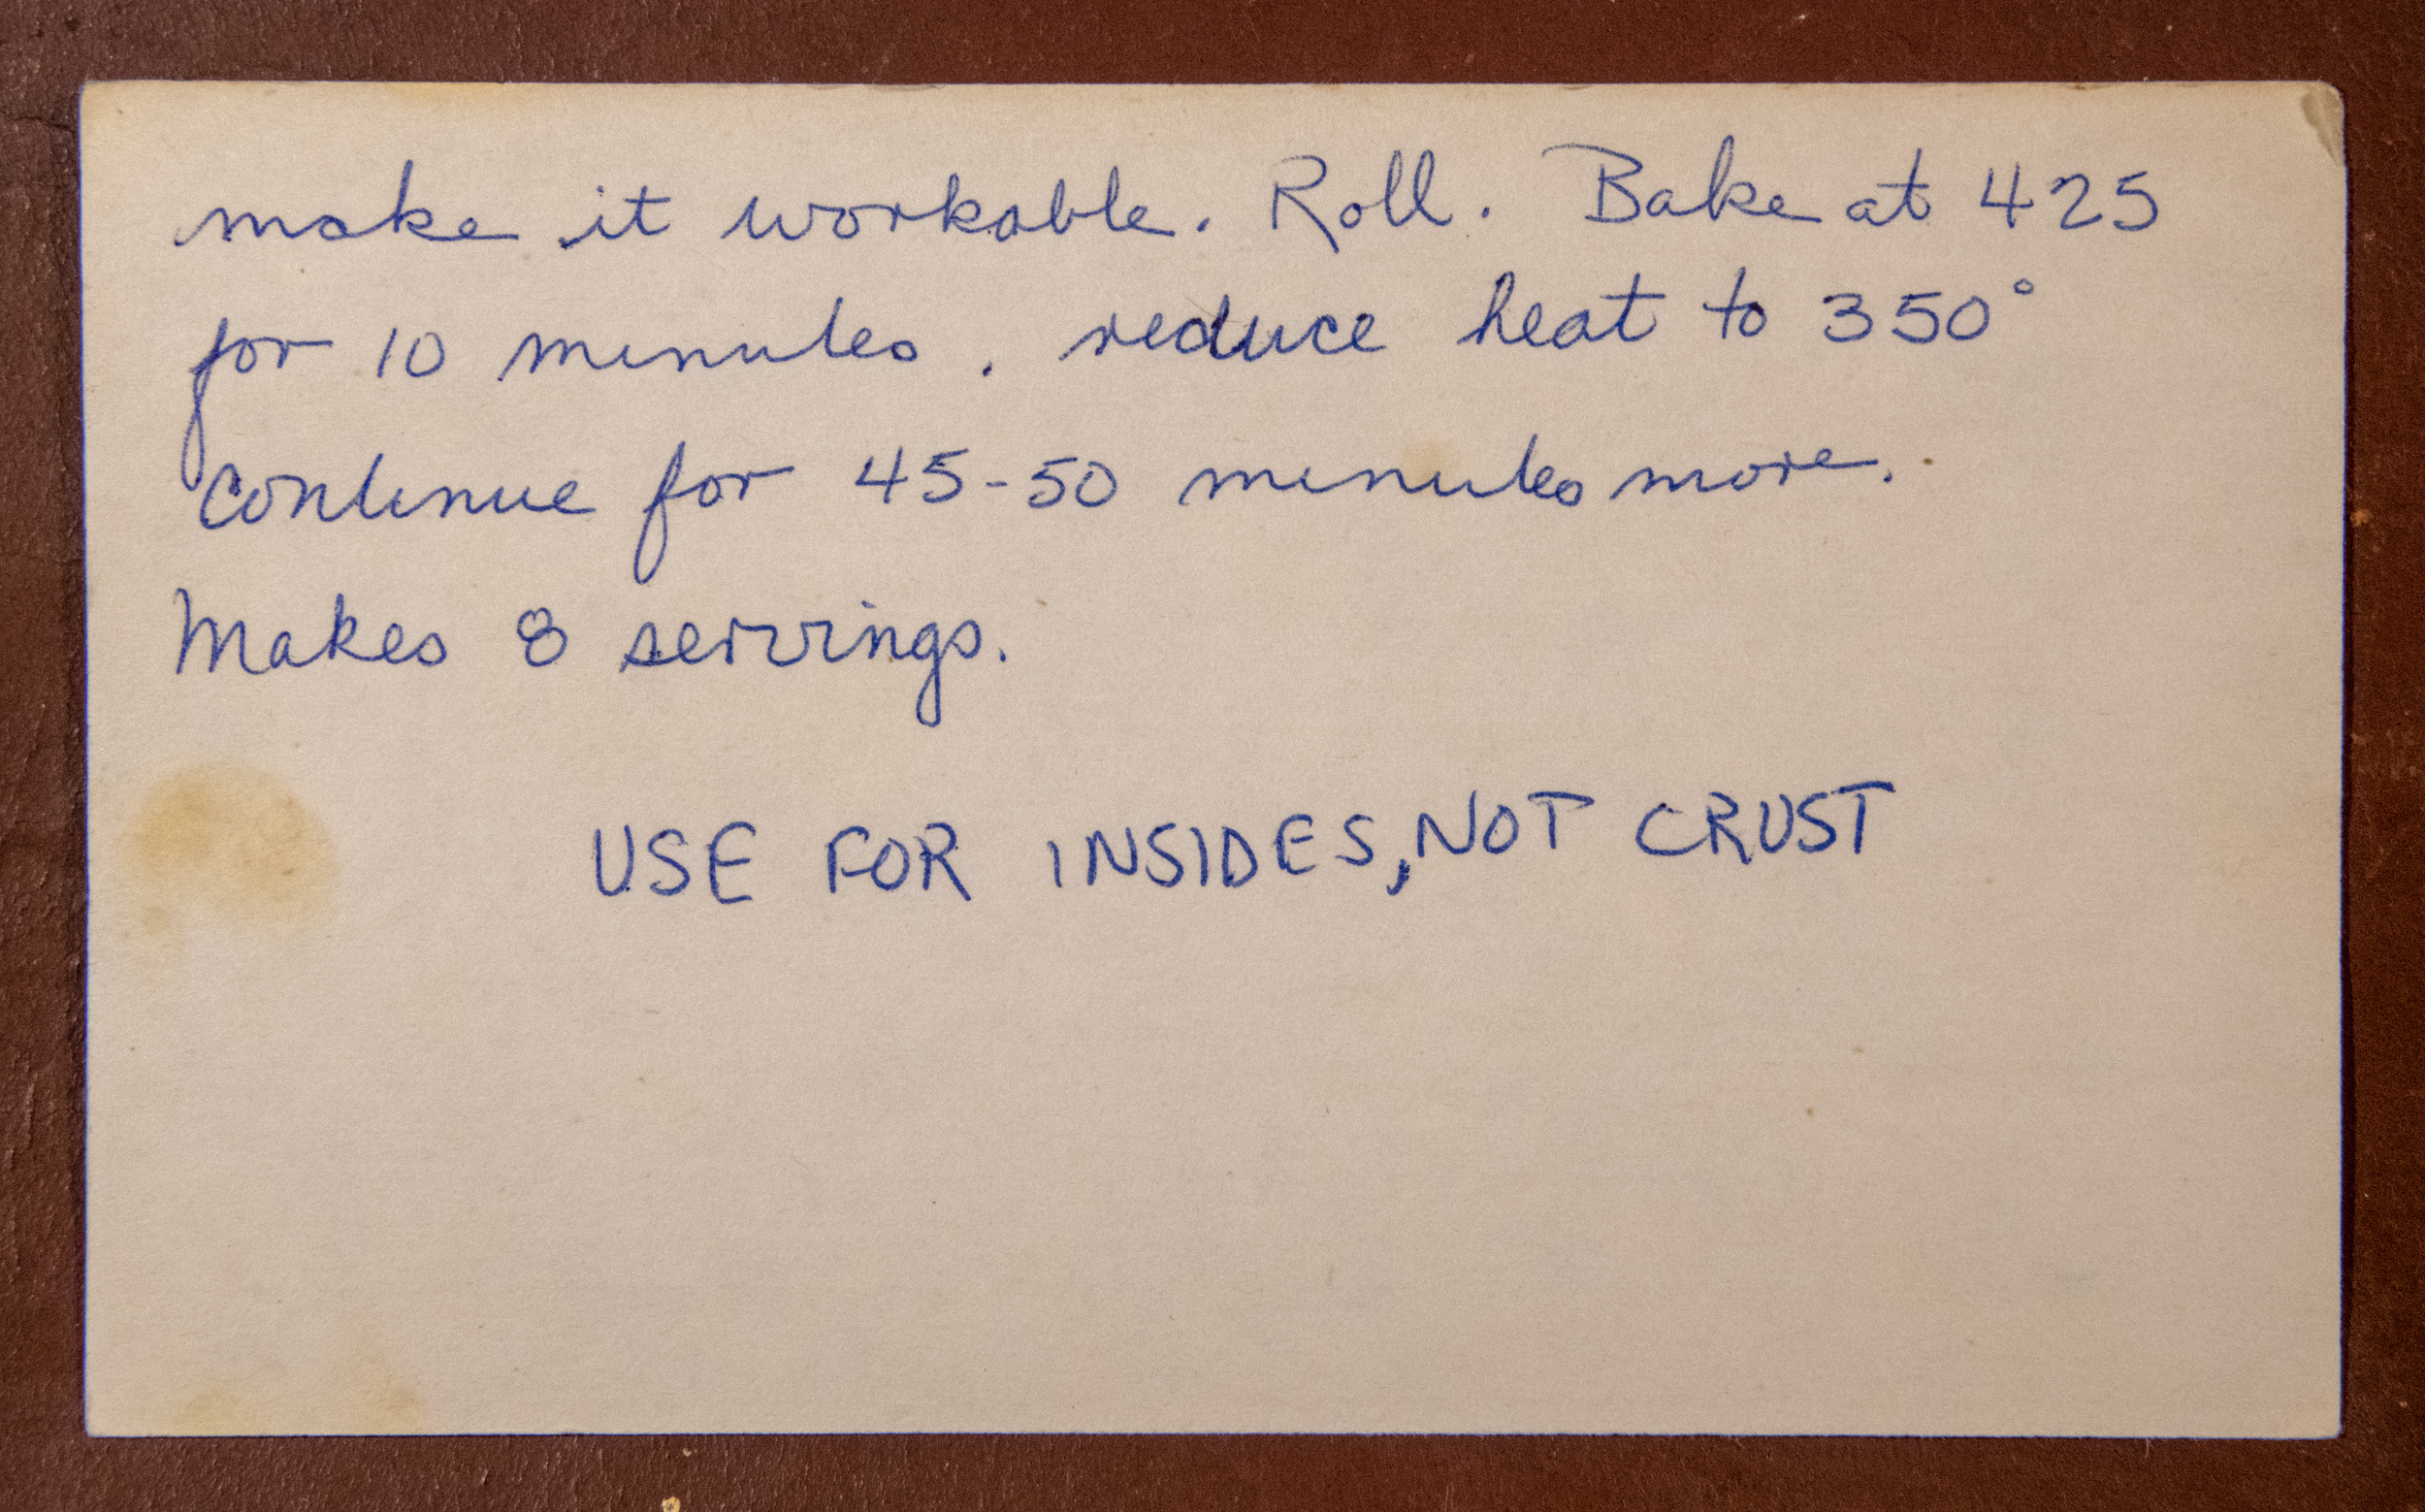 make it workable. Roll. Bake at 425
for 10 minutes. reduce heat to 350°
continue for 45-50 minutes more.
Makes 8 servings.
USE FOR INSIDES, NOT CRUST